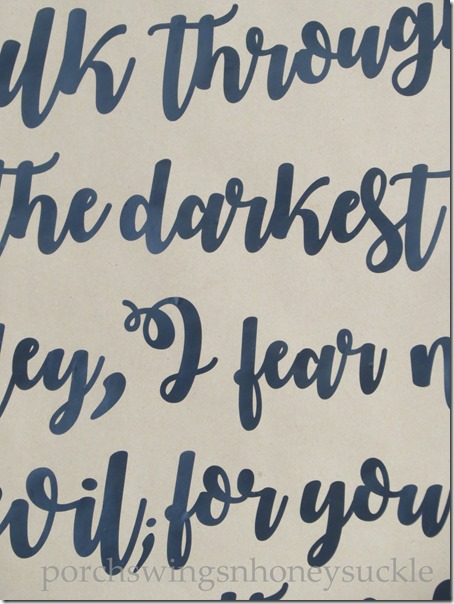 alk through
the darkest
ley, I fear n
evil; for you
porchswingsnhoneysuckle